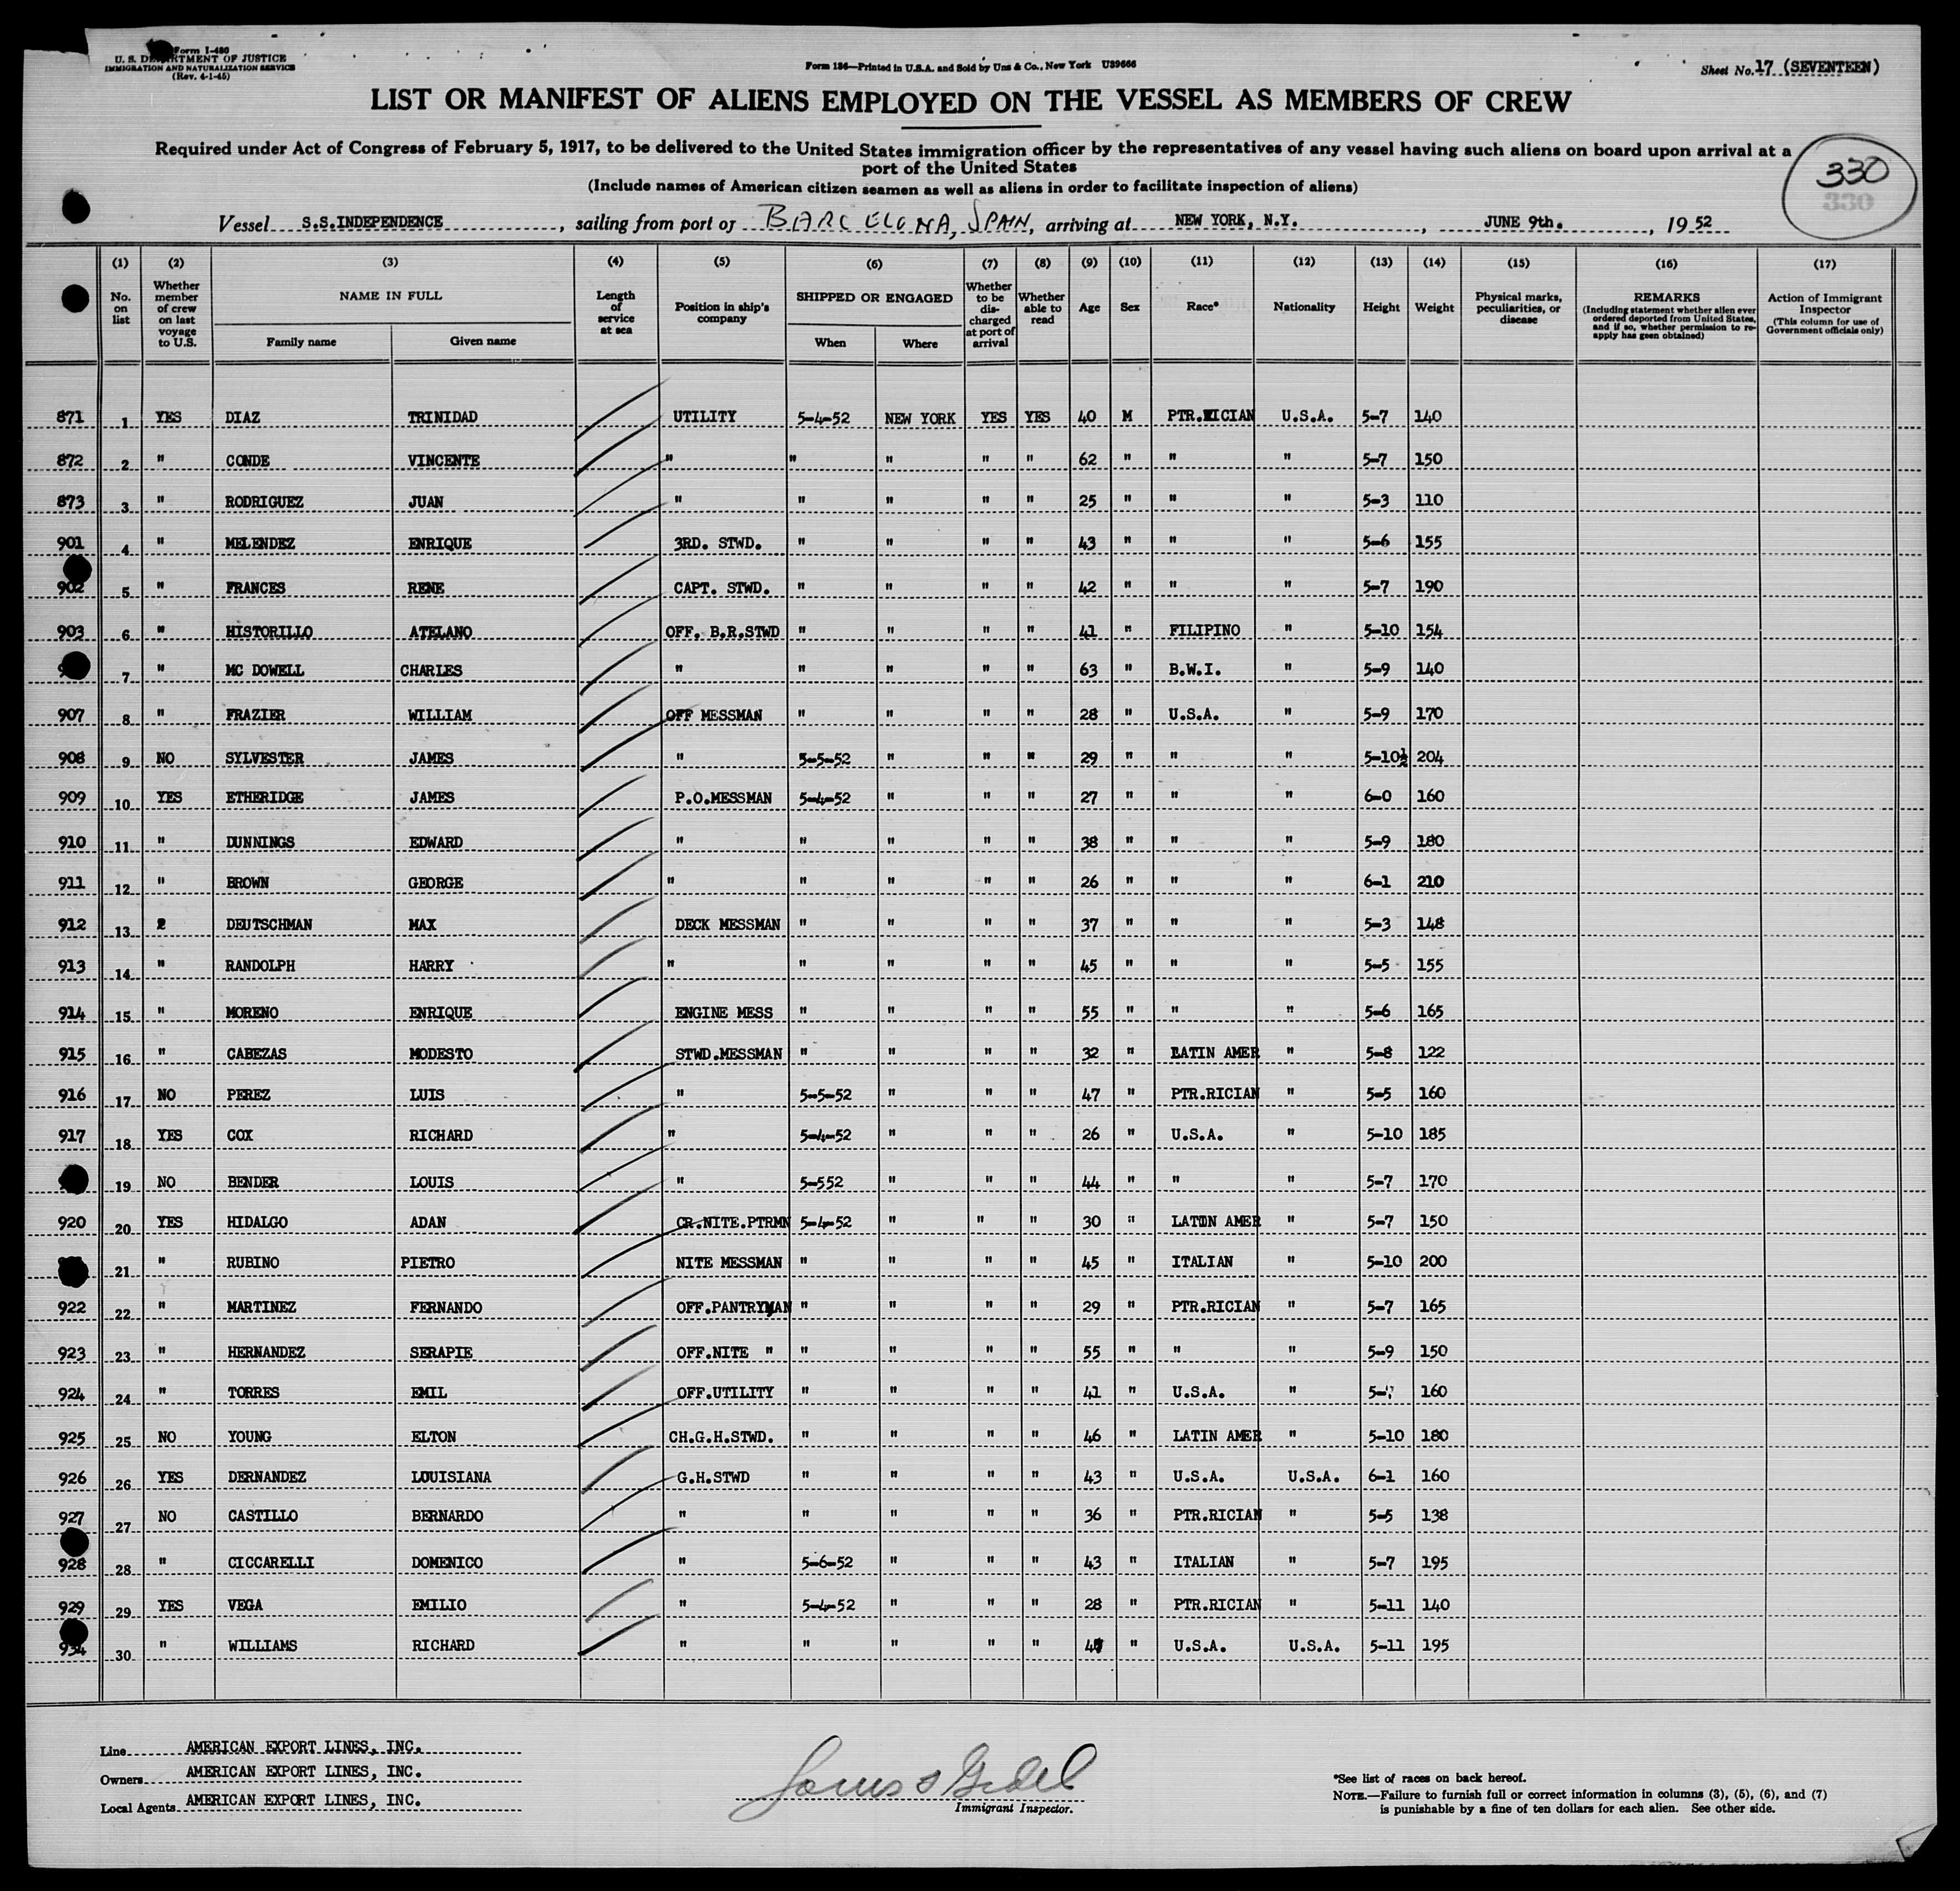 Form I-480
U. S. DEPARTMENT OF JUSTICE
IMMIGRATION AND NATURALIZATION SERVICE
(Rev. 4-1-45)
Form 136—Printed in U.S.A. and Sold by Unz & Co., New York U39666
Sheet No. 17 (SEVENTEEN)
LIST OR MANIFEST OF ALIENS EMPLOYED ON THE VESSEL AS MEMBERS OF CREW
Required under Act of Congress of February 5, 1917, to be delivered to the United States immigration officer by the representatives of any vessel having such aliens on board upon arrival at a
port of the United States
(Include names of American citizen seamen as well as aliens in order to facilitate inspection of aliens)
330
330
Vessel S.S.INDEPENDENCE, sailing from port of BARCELONA, SPAIN, arriving at NEW YORK, N.Y., JUNE 9th., 1952
(1) (2) (3) (4) (5) (6) (7) (8) (9) (10) (11) (12) (13) (14) (15) (16) (17)
No. on list
Whether member of crew on last voyage to U.S.
NAME IN FULL
Family name
Given name
Length of service at sea
Position in ship's company
SHIPPED OR ENGAGED
When
Where
Whether to be discharged at port of arrival
Whether able to read
Age
Sex
Race*
Nationality
Height
Weight
Physical marks, peculiarities, or disease
REMARKS
(Including statement whether alien ever ordered deported from United States, and if so, whether permission to re-apply has geen obtained)
Action of Immigrant Inspector
(This column for use of Government officials only)
871 1 YES DIAZ TRINIDAD UTILITY 5-4-52 NEW YORK YES YES 40 M PTR.RICIAN U.S.A. 5-7 140
872 2 " CONDE VINCENTE " " " " " 62 " " " 5-7 150
873 3 " RODRIGUEZ JUAN " " " " " 25 " " " 5-3 110
901 4 " MELENDEZ ENRIQUE 3RD. STWD. " " " " 43 " " " 5-6 155
902 5 " FRANCES RENE CAPT. STWD. " " " " 42 " " " 5-7 190
903 6 " HISTORILLO ATELANO OFF. B.R.STWD " " " " 41 " FILIPINO " 5-10 154
7 " MC DOWELL CHARLES " " " " " 63 " B.W.I. " 5-9 140
907 8 " FRAZIER WILLIAM OFF MESSMAN " " " " 28 " U.S.A. " 5-9 170
908 9 NO SYLVESTER JAMES " 5-5-52 " " " 29 " " " 5-10½ 204
909 10 YES ETHERIDGE JAMES P.O.MESSMAN 5-4-52 " " " 27 " " " 6-0 160
910 11 " DUNNINGS EDWARD " " " " " 38 " " " 5-9 180
911 12 " BROWN GEORGE " " " " " 26 " " " 6-1 210
912 13 2 DEUTSCHMAN MAX DECK MESSMAN " " " " 37 " " " 5-3 148
913 14 " RANDOLPH HARRY " " " " " 45 " " " 5-5 155
914 15 " MORENO ENRIQUE ENGINE MESS " " " " 55 " " " 5-6 165
915 16 " CABEZAS MODESTO STWD.MESSMAN " " " " 32 " LATIN AMER " 5-8 122
916 17 NO PEREZ LUIS " 5-5-52 " " " 47 " PTR.RICIAN " 5-5 160
917 18 YES COX RICHARD " 5-4-52 " " " 26 " U.S.A. " 5-10 185
19 NO BENDER LOUIS " 5-552 " " " 44 " " " 5-7 170
920 20 YES HIDALGO ADAN CR.NITE.PTRMN 5-4-52 " " " 30 " LATIN AMER " 5-7 150
21 " RUBINO PIETRO NITE MESSMAN " " " " 45 " ITALIAN " 5-10 200
922 22 " MARTINEZ FERNANDO OFF.PANTRYMAN " " " " 29 " PTR.RICIAN " 5-7 165
923 23 " HERNANDEZ SERAPIE OFF.NITE " " " " " 55 " " " 5-9 150
924 24 " TORRES EMIL OFF.UTILITY " " " " 41 " U.S.A. " 160
925 25 NO YOUNG ELTON CH.G.H.STWD. " " " " 46 " LATIN AMER " 5-10 180
926 26 YES DERNANDEZ LOUISIANA G.H.STWD " " " " 43 " U.S.A. U.S.A. 6-1 160
927 27 NO CASTILLO BERNARDO " " " " " 36 " PTR.RICIAN " 5-5 138
928 28 " CICCARELLI DOMENICO " 5-6-52 " " " 43 " ITALIAN " 5-7 195
929 29 YES VEGA EMILIO " 5-4-52 " " " 28 " PTR.RICIAN " 5-11 140
934 30 " WILLIAMS RICHARD " " " " " " U.S.A. U.S.A. 5-11 195
Line AMERICAN EXPORT LINES, INC.
Owners AMERICAN EXPORT LINES, INC.
Local Agents AMERICAN EXPORT LINES, INC.
Immigrant Inspector.
*See list of races on back hereof.
NOTE.—Failure to furnish full or correct information in columns (3), (5), (6), and (7)
is punishable by a fine of ten dollars for each alien. See other side.